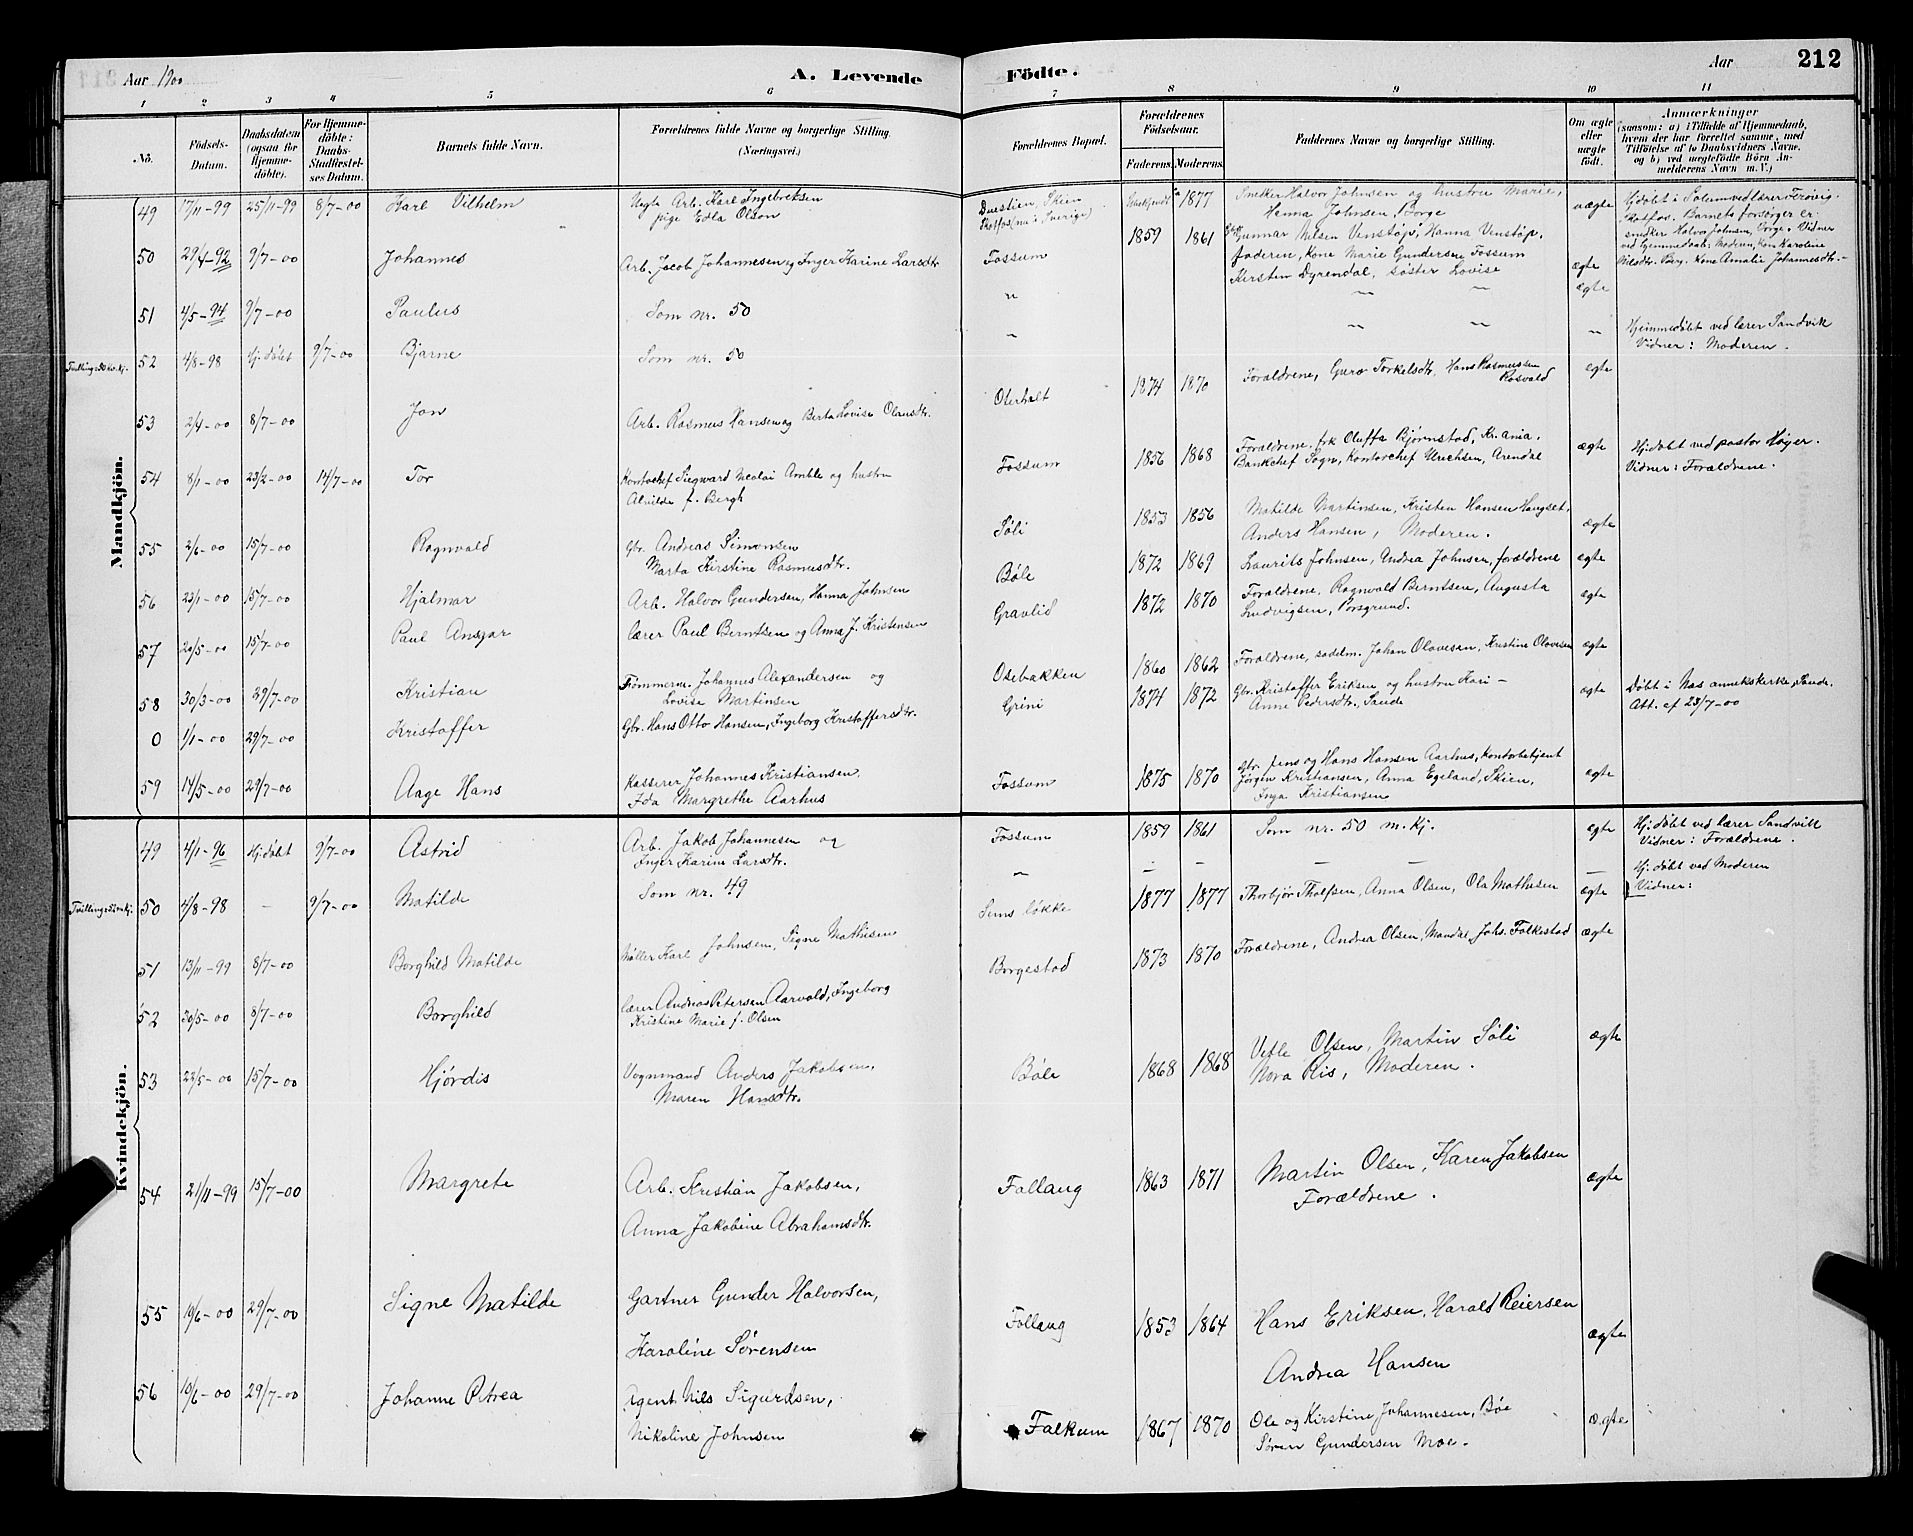 Aar 1900
A. Levende
Födte.
Aar
212
1 2 3 4 5 6 7 8 9 10 11
No.
Födsels-
Datum.
Daabsdatem
(ogsaa for
Hjemme-
döbte).
For Hjemme-
döbte:
Daabs-
Stadfæstel-
ses Datum.
Barnets fulde Navn.
Forældrenes fulde Navne og borgerlige Stilling.
(Næringsvei.)
Forældrenes Bopæl.
Forældrenes
Födselsaar.
Faderens. Moderens.
Faddernes Navne og borgerlige Stilling.
Om ægte
eller
uægte
födt.
Anmærkninger
(saasom: a) i Tilfælde af Hjemmedaab,
hvem der har forrettet samme, med
Tilföielse af to Daabsvidners Navne,
og b) ved uægtefödte Börn An-
melderens Navn m. V.)
Mandkjön.
49 17/11-99 25/11-99 8/7-00 Karl Vilhelm
Ungk. Arb. Karl Ingebretsen
pige Edla Olson
Skien
Skotfos (nu i Sverige)
1877
Snekker Halvor Johnsen og hustru Marie,
Hanna Johnsen, Borge
uægte
Hj.døbt i Solum ved lærer
Skotfos. Barnets forsørger er
snedker Halvor Johnsen, Borge. Vidner
ved hjemmedaab: Moderen, Kone Karoline
Nilsdtr. Berg. Kone Amalie Johannesdtr.-
50 29/4-92 9/7-00 Johannes
Arb. Jacob Johannesen og Inger Karine Larsdtr
Fossum
1859 1861
Gunnar Nilsen Venstøp, Hanna Venstøp,
faderen, Kone Marie Gundersen Fossum
Kirsten Dyrendal, søster Lovise
ægte
51 4/5-94 9/7-00 Paulus
Som nr. 50
" — — ægte
Tvilling: 50 kv. kj.
52 4/8-98 Hj. døbt 9/7-00 Bjarne
Som nr. 50
— — — —
Hjemmedøbt ved lærer Sandvik
Vidner: Moderen.
53 2/4-00 8/7-00 Jon
Arb. Rasmus Hansen og Berta Lovise Olausdtr.
Oterholt
1874 1870
Forældrene, Guro Torkelsdtr, Hans Rasmussen
Rosvald
ægte
54 8/1-00 23/2-00 14/7-00 Tor
Kontorchef Siegward Nicolai Amble og hustru
Alvilde f. Bergh
Fossum
1856 1868
Forældrene, frk Oluffa Bjørnstad, Kr.ania,
Bankchef Sogn, Kontorchef Ulrichsen, Arendal
ægte
Hj.døbt ved pastor Høyer.
Vidner: Forældrene.
55 2/6-00 15/7-00 Ragnvald
Gbr. Andreas Simonsen
Marta Kirstine Rasmusdtr.
Søli
1853 1856
Matilde Martinsen, Kristen Hansen Haugset,
Anders Hansen, Moderen.
ægte
56 23/1-00 15/7-00 Hjalmar
Arb. Halvor Gundersen, Hanna Johnsen
Bøle
1872 1869
Laurits Johnsen, Andrea Johnsen, forældrene
ægte
57 20/5-00 15/7-00 Paul Ansgar
lærer Paul Berntsen og Anna J. Kristensen
Gravlid
1872 1870
Forældrene, Ragnvald Berntsen, Augusta
Ludvigsen, Porsgrund.
ægte
58 30/3-00 29/7-00 Kristian
Tømmerm. Johannes Alexandersen og
Lovise Martinsen
Osebakken
1860 1862
Forældrene, sadelm. Johan Olavesen, Kristine Olavesen
ægte
0 1/1-00 29/7-00 Kristoffer
Gbr. Hans Otto Hansen, Ingeborg Kristoffersdtr.
Grini
1874 1872
Gbr. Kristoffer Eriksen og hustru Kari –
Anne Pedersdtr, Saude
ægte
Døbt i Næs annekskirke, Saude.
Att. af 23/7-00
59 14/5-00 29/7-00 Aage Hans
kasserer Johannes Kristiansen,
Ida Margrethe Aarhus
Fossum
1875 1870
Gbr. Jens og Hans Hansen Aarhus, kontorbetjent
Jörgen Kristiansen, Anna Egeland, Skien,
Inga Kristiansen
ægte
Kvindekjön.
49 4/1-96 Hj. døbt 9/7-00 Astrid
Arb. Jakob Johannesen og
Inger Karine Larsdtr.
Fossum
1859 1861
Som nr. 50 m.kj.
ægte
Hj. døbt ved lærer Sandvik
Vidner: Forældrene.
50 4/8-98 – 9/7-00 Matilde
Som nr. 49
— — — — — —
Hj. døbt ved Moderen
Vidner:
51 13/11-99 8/7-00 Borghild Matilde
Møller Karl Johnsen, Signe Mathisen
Sems løkke
1877 1877
Thorbjør Tholfsen, Anna Olsen, Ola Mathisen
ægte
52 30/5-00 8/7-00 Borghild
lærer Andreas Petersen Aarvold, Ingeborg
Kristine Marie f. Olsen
Borgestad
1873 1870
Forældrene, Andrea Olsen, Mandal, Johs. Folkestad
ægte
53 23/5-00 15/7-00 Hjørdis
Vognmand Anders Jakobsen,
Maren Hansdtr.
Bøle
1868 1868
Vetle Olsen, Martin Søli
Nora Ris, Moderen.
ægte
54 21/11-99 15/7-00 Margrete
Arb. Kristian Jakobsen,
Anna Jakobine Abrahamsdtr.
Follaug
1863 1871
Martin Olsen, Karen Jakobsen
Forældrene.
ægte
55 19/6-00 29/7-00 Signe Matilde
Gartner Gunder Halvorsen,
Karoline Sørensen
Follaug
1853 1864
Hans Eriksen, Harald Reiersen
Andrea Hansen
ægte
56 10/6-00 29/7-00 Johanne Petrea
Agent Nils Sigurdsen,
Nikoline Johnsen
Falkum
1867 1870
Ole og Kirstine Johannesen, Bøe
Søren Gundersen Moe.
ægte